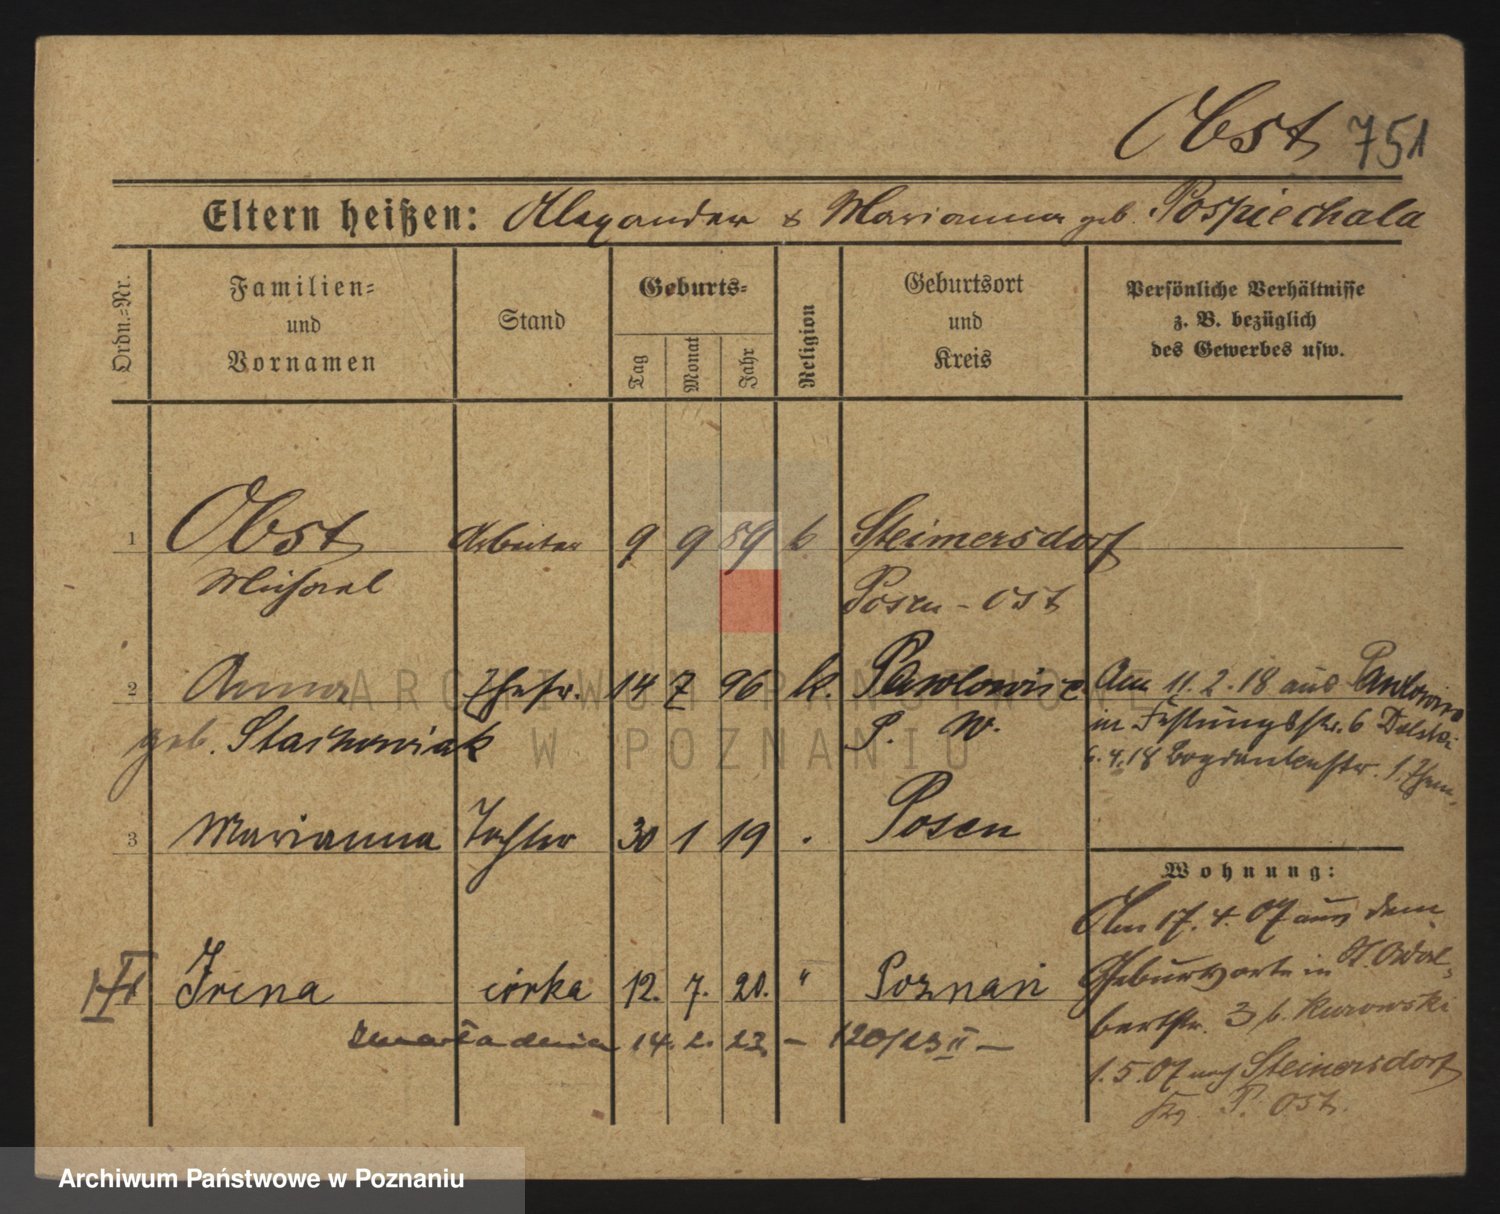 Obst 751
Eltern heißen: Alexander & Marianna geb. Pospiechala
Ordn.-Nr.
Familien-
und
Vornamen
Stand
Geburts-
Tag
Monat
Jahr
Religion
Geburtsort
und
Kreis
Persönliche Verhältnisse
z. B. bezüglich
des Gewerbes usw.
1 Obst Arbeiter 9 9 89 k Steimersdorf
Michael Posen-Ost
2 Anna Ehefr. 14 7 96 k. Pawlowice
geb. Stachowiak P. W.
Am 11.2.18 aus Pawlowice
in Festungsstr. 6
6.4.18
3 Marianna Tochter 30 1 19 . Posen
Wohnung:
Am 17.4.07 aus dem
Geburtsorte in St. Adal-
bertstr. 3 b. Kurowski
1.5.07 nach Steimersdorf
Krs P. Ost.
Irena córka 12. 7. 20. " Poznań
zmarła dnia 14. 2. 23 - 120/23 II -
ARCHIWUM PAŃSTWOWE
W POZNANIU
Archiwum Państwowe w Poznaniu